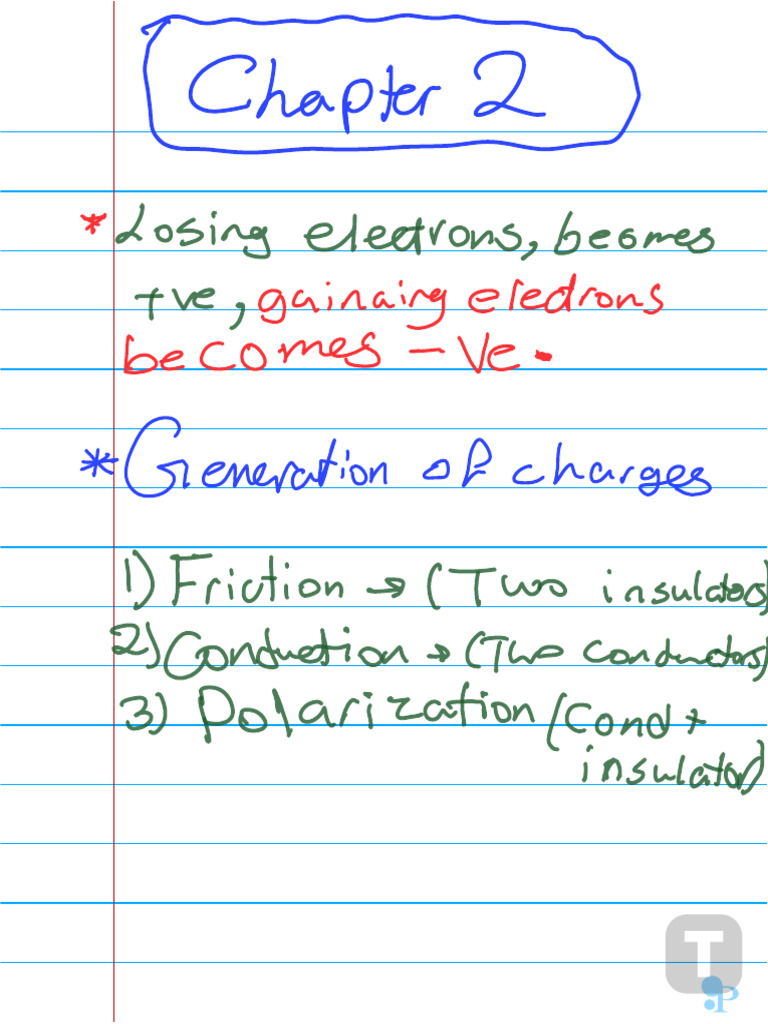 Chapter 2
* Losing electrons, becomes
+ve, gainaing electrons
becomes - Ve.
* Generation of charges
1) Friction → (Two insulators)
2) Conduction → (Two conductors)
3) Polarization (Cond +
insulator)
T
P